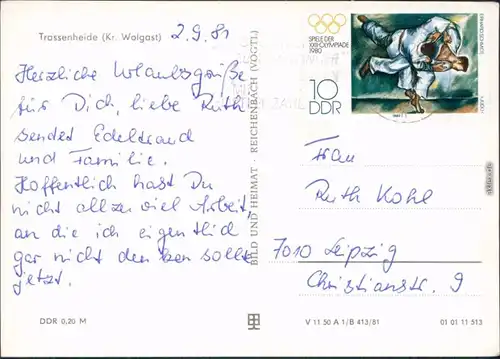 Trassenheide (Kr. Wolgast)
2.9.81
Herzliche Urlaubsgrüße
für Dich, liebe Ruth
sendet Edeltraud
und Familie.
Hoffentlich hast Du
nicht allzu viel Arbeit,
an die ich eigentlich
gar nicht denken sollte
jetzt.
DDR 0,20 M
BILD UND HEIMAT · REICHENBACH (VOGTL)
SPIELE DER
XXII. OLYMPIADE
1980
10
DDR
Frau
Ruth Kohl
7010 Leipzig
Christianstr. 9
V 11 50 A 1/B 413/81
01 01 11 513